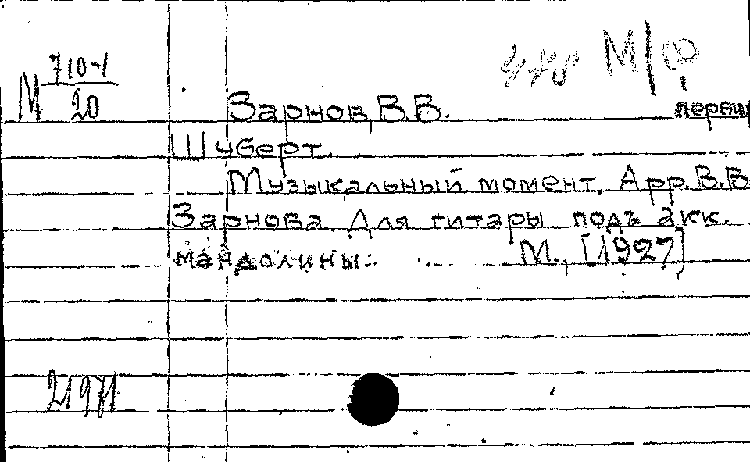 М 710-1/20
М/Ф
Зарнов, В.В.
Шуберт.
Музыкальный момент. Арр. В.В.
Зарнова. Для гитары подъ акк.
мандолины. М., [1927]
21971